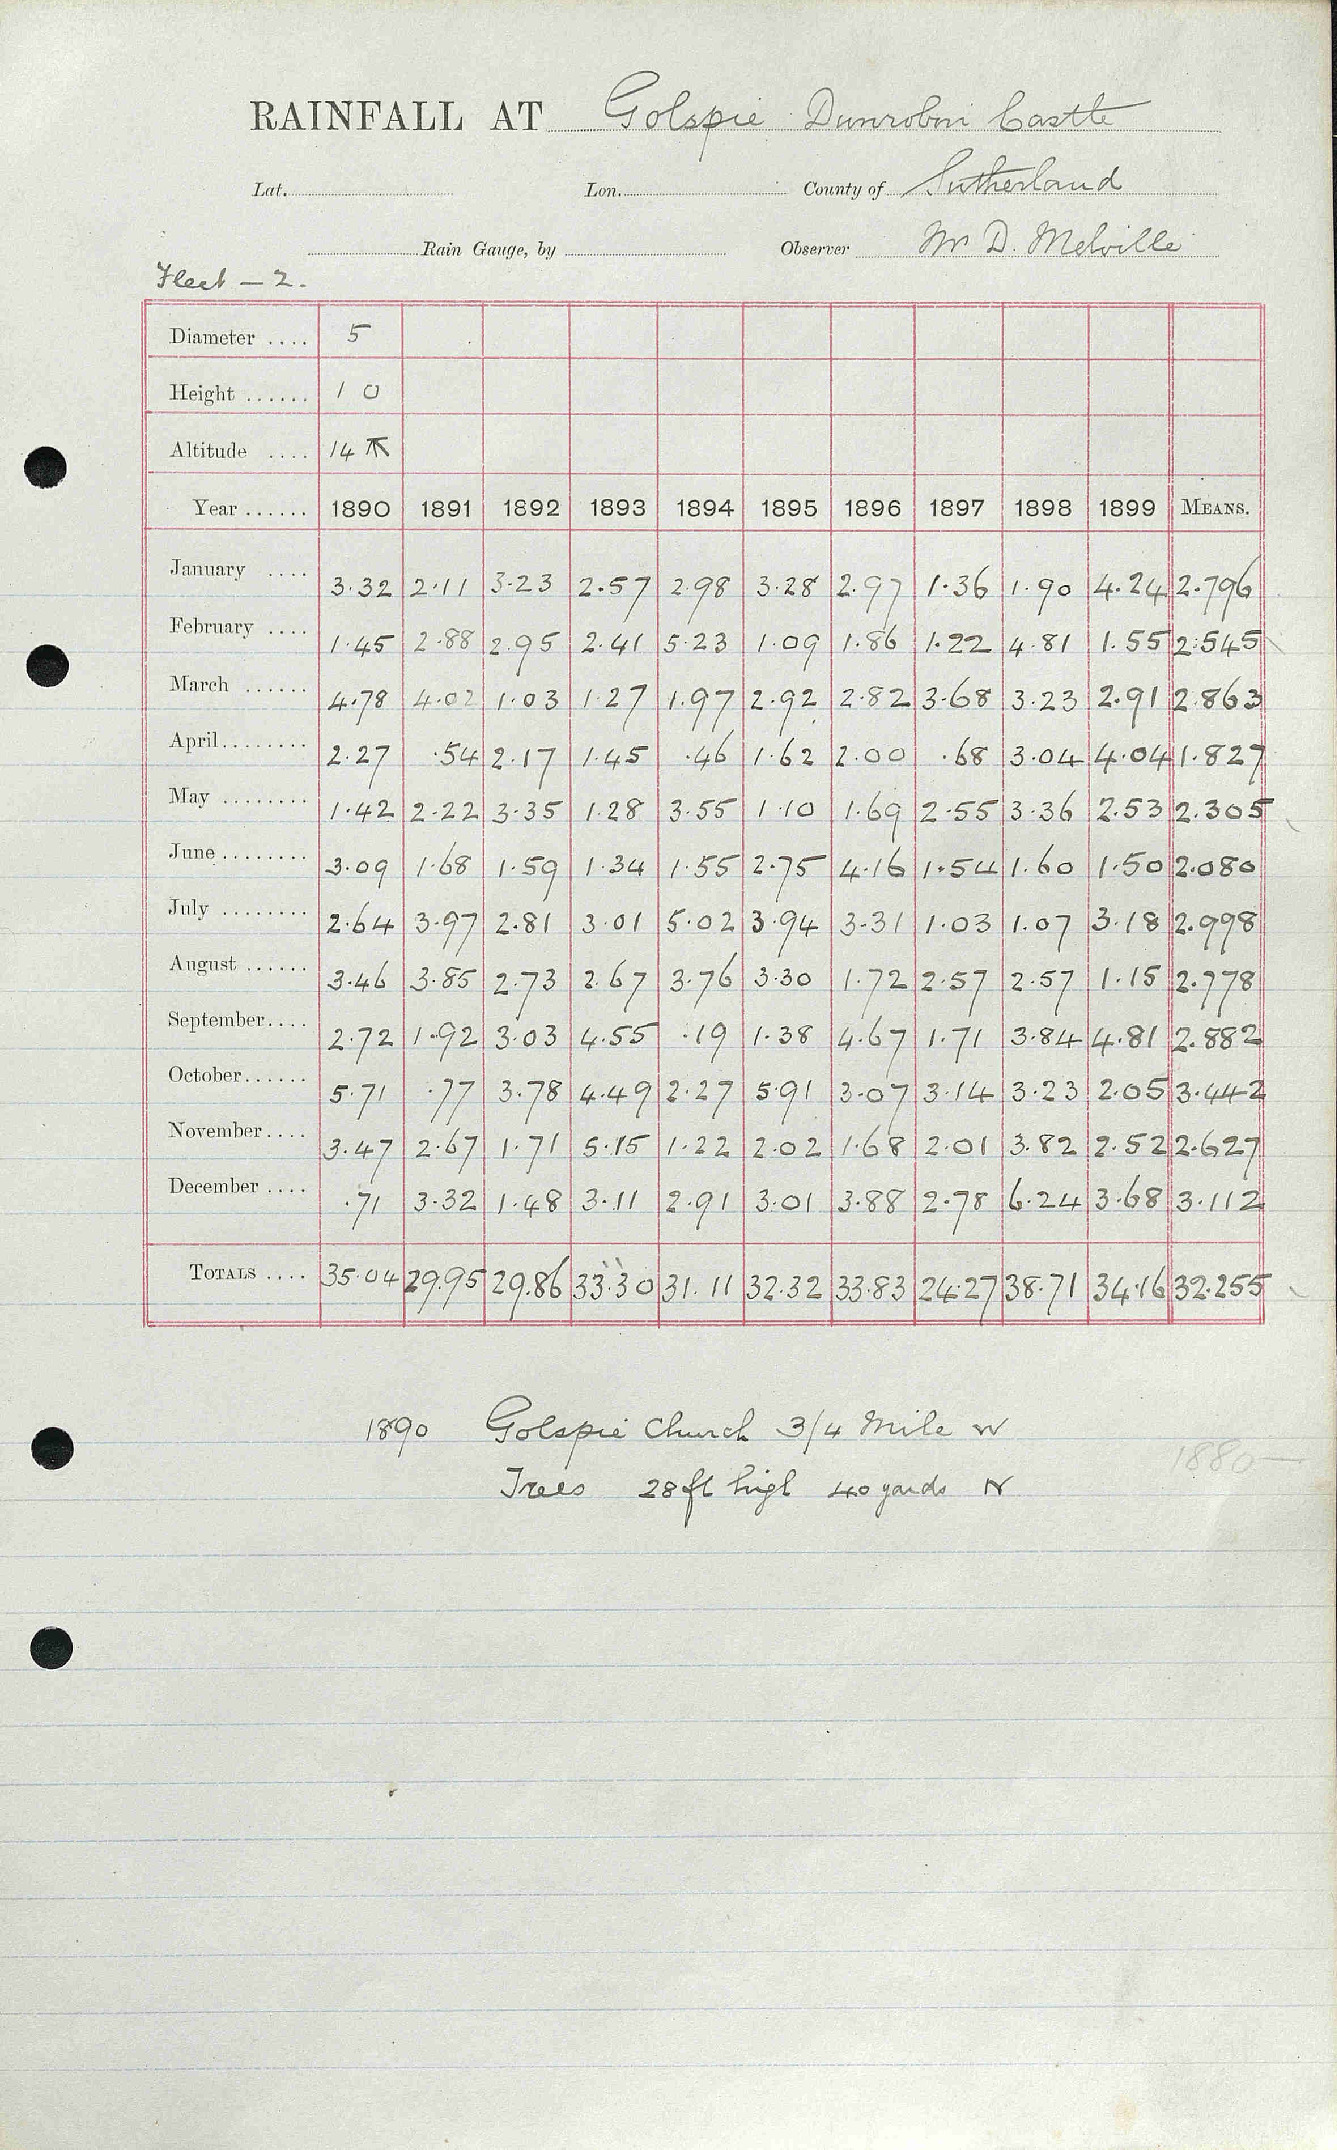 RAINFALL AT Golspie Dunrobin Castle
Lat. Lon. County of Sutherland
Rain Gauge, by Observer Mr D. Melville
Fleet - 2.
Diameter .... 5
Height ...... 1 0
Altitude .... 14
Year ...... 1890 1891 1892 1893 1894 1895 1896 1897 1898 1899 MEANS.
January .... 3.32 2.11 3.23 2.57 2.98 3.28 2.97 1.36 1.90 4.24 2.796
February .... 1.45 2.88 2.95 2.41 5.23 1.09 1.86 1.22 4.81 1.55 2.545
March ...... 4.78 4.02 1.03 1.27 1.97 2.92 2.82 3.68 3.23 2.91 2.863
April........ 2.27 .54 2.17 1.45 .46 1.62 2.00 .68 3.04 4.04 1.827
May ........ 1.42 2.22 3.35 1.28 3.55 1.10 1.69 2.55 3.36 2.53 2.305
June ........ 3.09 1.68 1.59 1.34 1.55 2.75 4.16 1.54 1.60 1.50 2.080
July ........ 2.64 3.97 2.81 3.01 5.02 3.94 3.31 1.03 1.07 3.18 2.998
August ...... 3.46 3.85 2.73 2.67 3.76 3.30 1.72 2.57 2.57 1.15 2.778
September.... 2.72 1.92 3.03 4.55 .19 1.38 4.67 1.71 3.84 4.81 2.882
October...... 5.71 .77 3.78 4.49 2.27 5.91 3.07 3.14 3.23 2.05 3.442
November.... 3.47 2.67 1.71 5.15 1.22 2.02 1.68 2.01 3.82 2.52 2.627
December .... .71 3.32 1.48 3.11 2.91 3.01 3.88 2.78 6.24 3.68 3.112
TOTALS .... 35.04 29.95 29.86 33.30 31.11 32.32 33.83 24.27 38.71 34.16 32.255
1890 Golspie Church 3/4 Mile W
1880-
Trees 28ft high 40 yards N